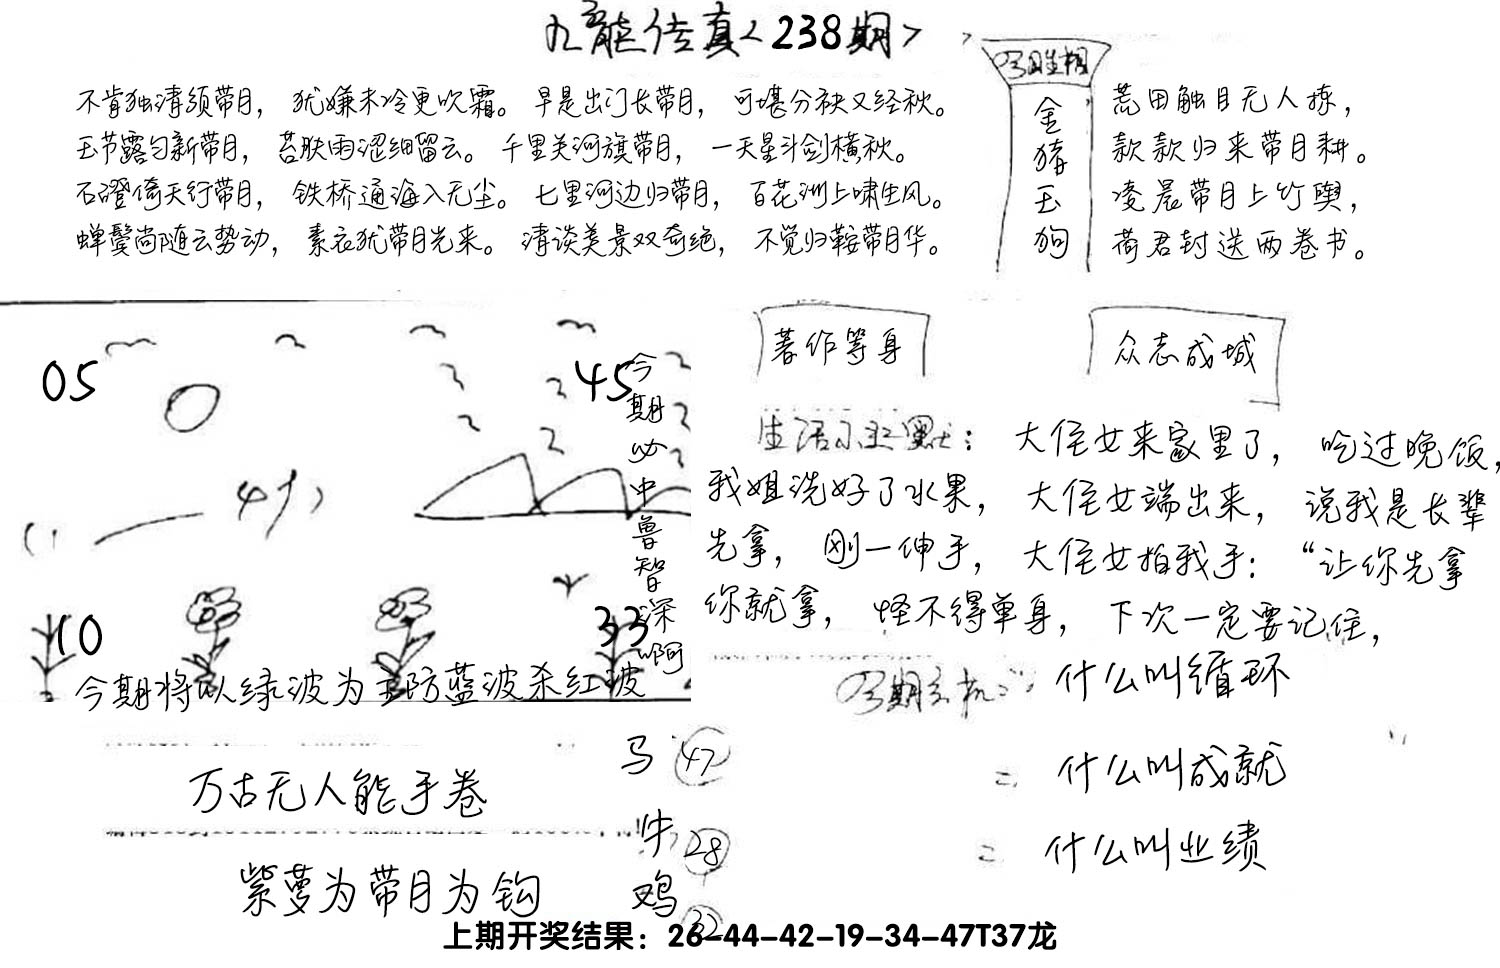 九龙传真<238期>
不肯独清须带月，犹嫌未冷更吹霜。早是出门长带月，可堪分袂又经秋。
玉节露匀新带月，苔肤雨涩细留云。千里关河旗带月，一天星斗剑横秋。
石磴倚天行带月，铁桥通海入无尘。七里河边归带月，百花洲上啸生风。
蝉鬓尚随云势动，素衣犹带月光来。清谈美景双奇绝，不觉归鞍带月华。
金猪玉狗
荒田触目无人拣，
款款归来带月耕。
凌晨带月上竹舆，
荷君封送两卷书。
05
45
10
33
今期必中鲁智深啊
今期将以绿波为主防蓝波杀红波
著作等身
众志成城
大侄女来家里了，吃过晚饭，
我姐洗好了水果，大侄女端出来，说我是长辈
先拿，刚一伸手，大侄女拍我手：“让你先拿
你就拿，怪不得单身，下次一定要记住，
什么叫循环
= 什么叫成就
= 什么叫业绩
万古无人能手卷
紫萝为带月为钩
马 47
牛 28
鸡 32
上期开奖结果：26-44-42-19-34-47T37龙